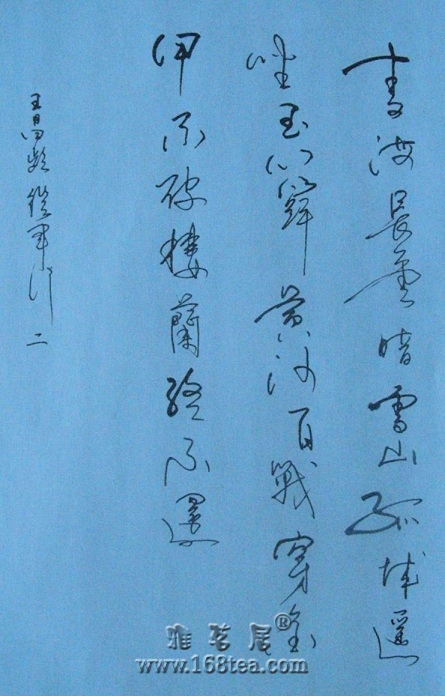 青海長雲暗雪山孤城遥
望玉门關黄沙百戰穿金
甲不破樓蘭終不還
王昌齡從軍行 二
雅茗居®
www.168tea.com